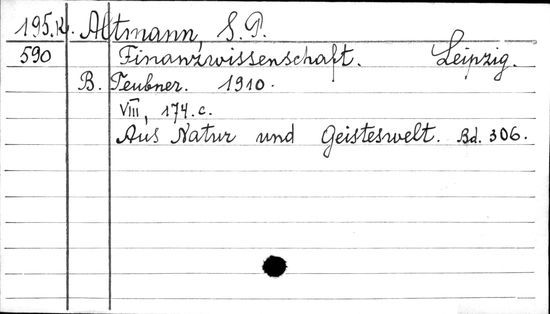 195.K. Altmann, S. P.
590 Finanzwissenschaft. Leipzig.
B. Teubner. 1910.
VIII, 174.c.
Aus Natur und Geisteswelt. Bd. 306.